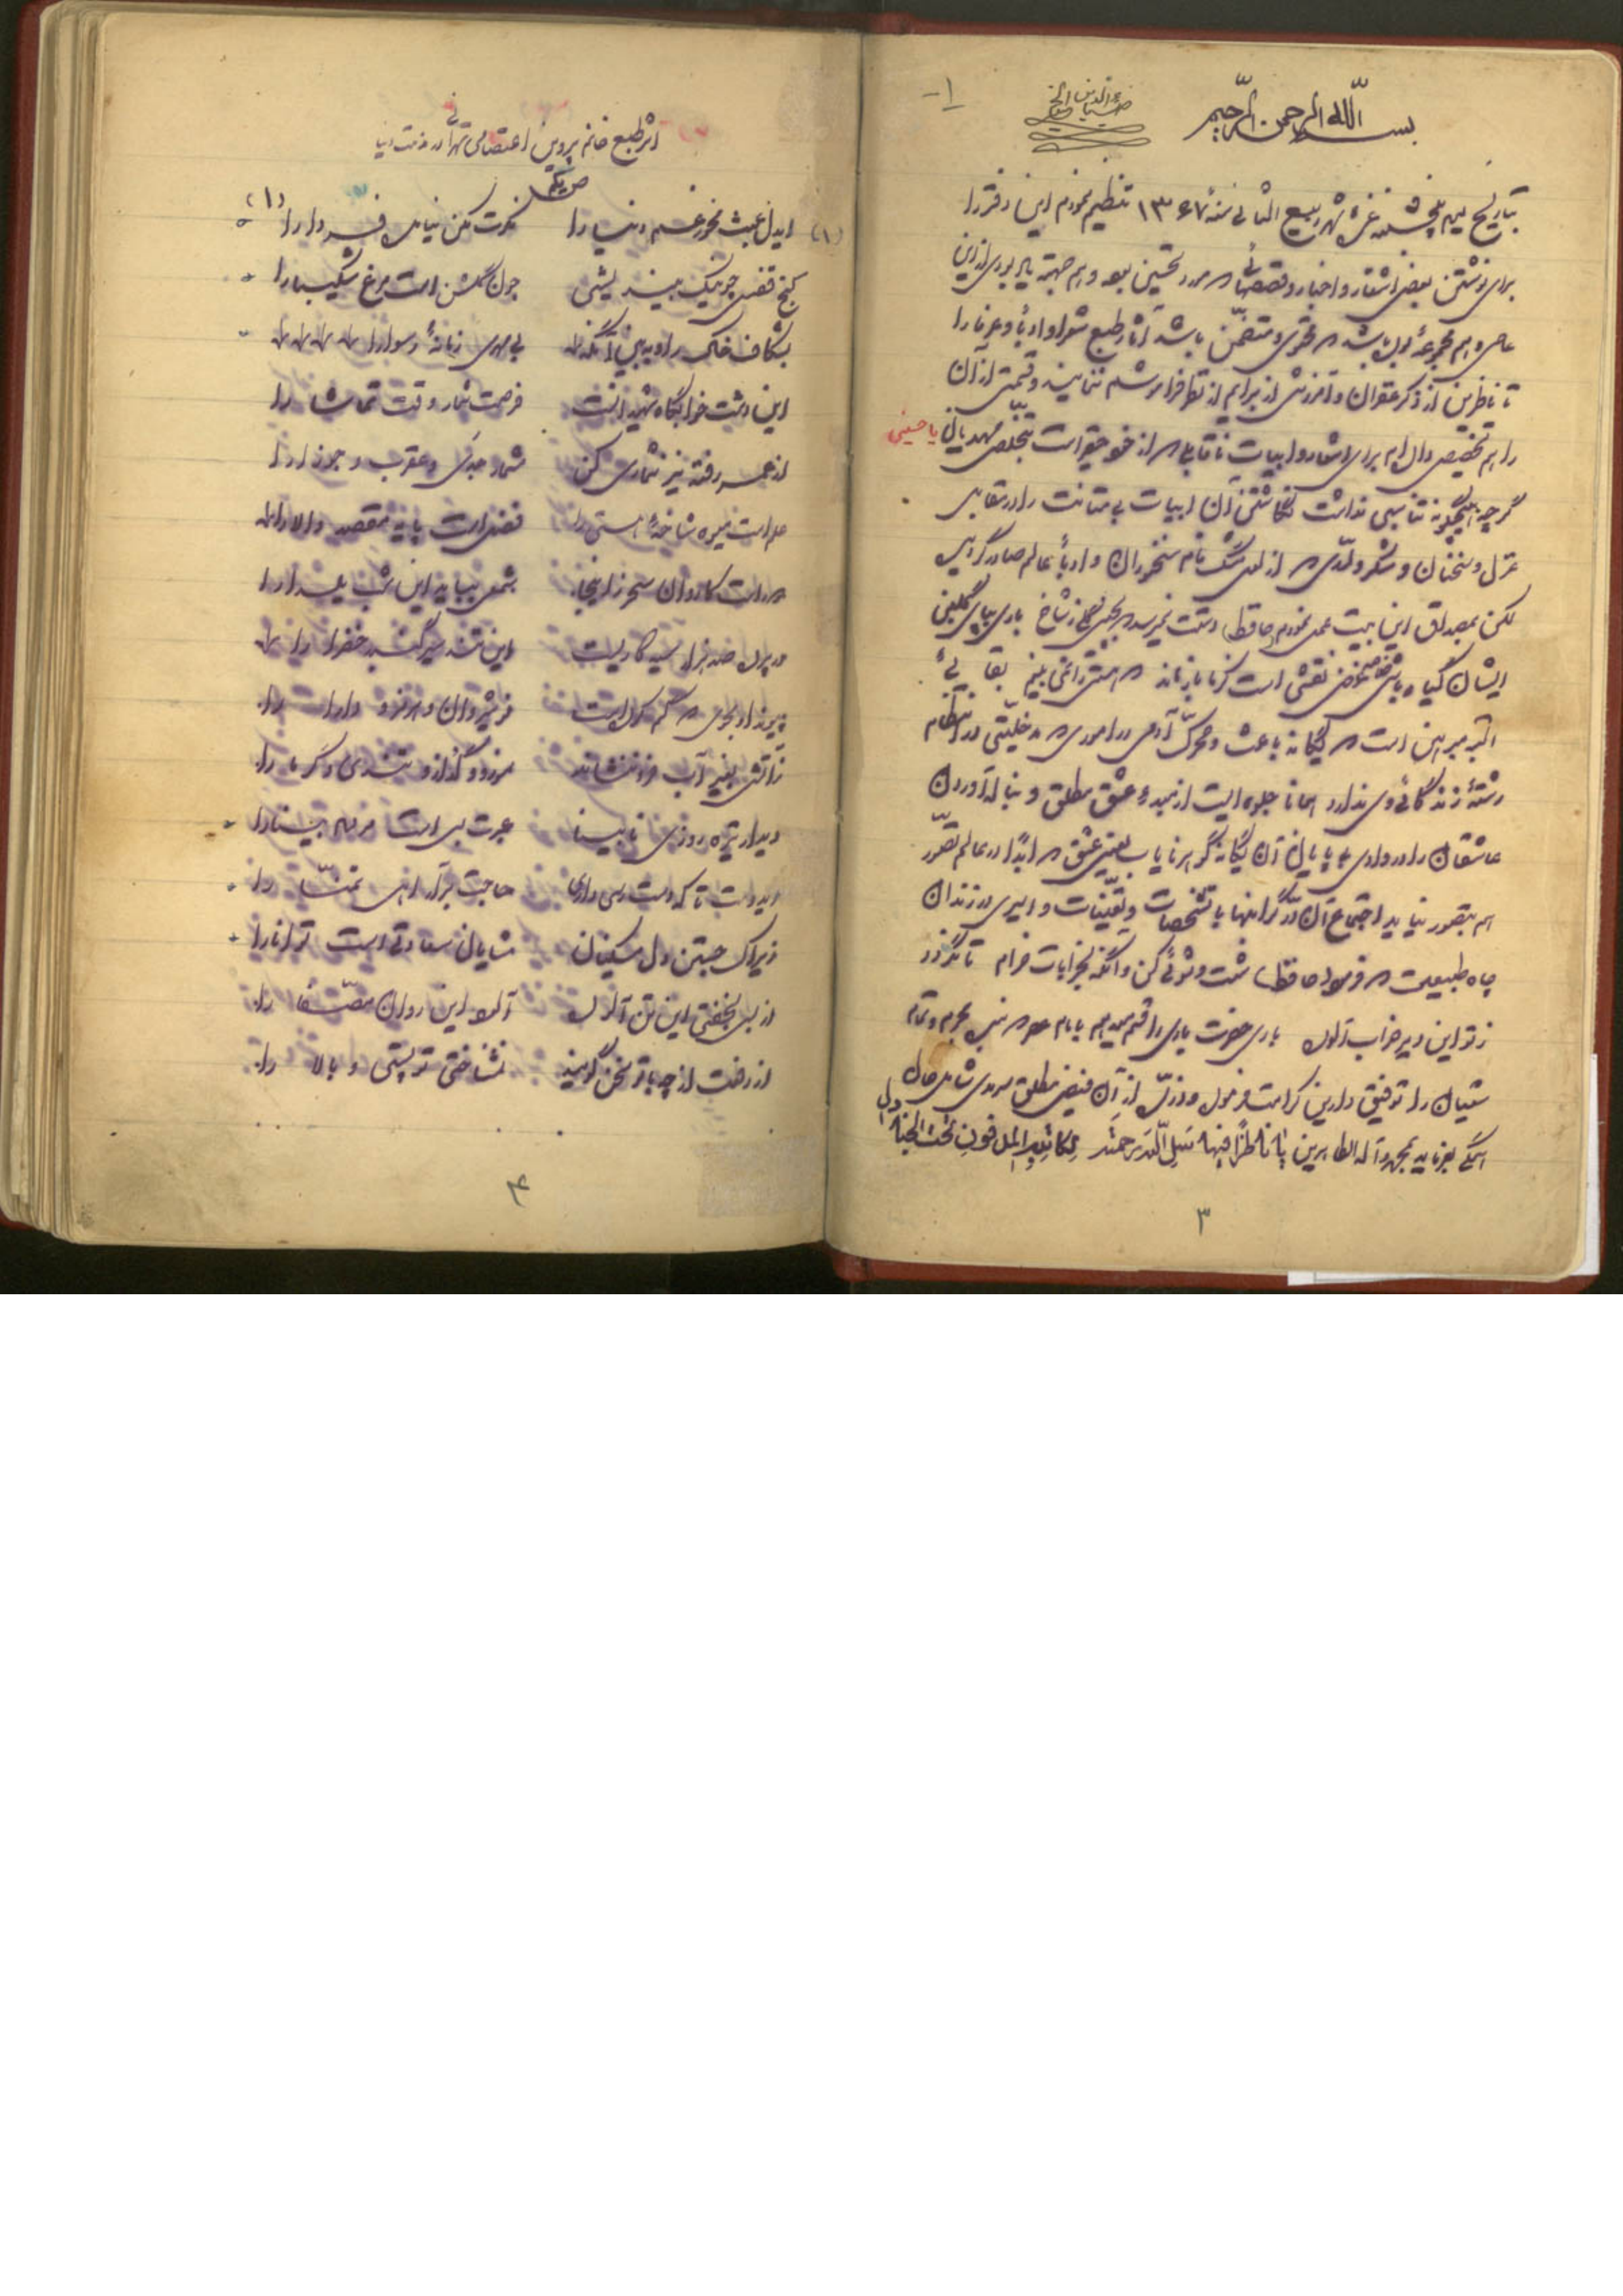 بسم الله الرحمن الرحیم
۱-
بتاریخ یوم پنجشنبه غرهٔ شهر ربیع الثانی سنهٔ ۱۳۶۷ تنظیم نمودم این دفتر را
برای نوشتن بعضی اشعار و اخبار و قصصی که مورد تحسین بود و هم جهته یادبودی از این
عاصی و هم مجموعهٔ بوده باشد که محتوی و متضمن باشد آثار طبع شعرا و ادبأ و عرفا را
تا ناظرین از ذکر غفران و آمرزش از برایم از نظر فراموشم ننمایند و قسمتی از آن
را هم تخصیص دادم برای اشعار و ابیات ناقابلی که از خود حقیر است بتخلص مهدیا یا حسینی
گرچه هیچگونه تناسبی نداشت نگاشتن آن ابیات بی متانت را در مقابل
غزل و سخنان و شکر که از سخنوران و ادبأ عالم صادر گردیده
لکن بمصداق این بیت عمل نمودم (حافظ) دستت نمیرسد که بچینی گلی ز شاخ باری بپای گلبن
ایشان گیاه باش غرض نقشی است کز ما باز ماند که هستی را نمی بینم بقائی
البته مبرهن است که یگانه باعث و محرک آدمی در اموری که مدخلیتی در نظام
رشتهٔ زندگانی وی ندارد همانا جلوه ایست از مبدء عشق مطلق و بناله آوردن
عاشقان را در وادی بی پایان آن یگانه گوهر نایاب یعنی عشق که ابداً در عالم تصور
هم بتصور نیاید اجتماع آن در گرانبها با تشخصات و تعینات و اسیری در زندان
چاه طبیعت که فرمود (حافظ) شست و شوئی کن و آنگه بخرابات خرام تا نگردد
ز تو این دیر خراب آلوده باری حضرت باری را قسم میدهم
شیعیان را توفیق دارین کرامت فرموده و از آن فیض مطلق سرمدی شامل حال
همگی بفرماید بمحمد و آله الطاهرین یا ناظراً فیها سل الله مرحمة لکاتبها المدفون تحت
۳
اثر طبع خانم پروین اعتصامی تهرانی در مذمت دنیا
(۱) ایدل عبث مخور غم دنیا را فکرت مکن نیامده فردا را (۱)
کنج قفس چو نیک بیندیشی چون گلشن است مرغ شکیبا را
بشکاف خاک را و ببین آنگه بی مهری زمانهٔ رسوا را
این دشت خوابگاه شهیدانست فرصت شمار وقت تماشا را
از عمر رفته نیز شماری کن مشمار جدی و عقرب و جوزا را
علم است میوه شاخهٔ هستی را فضل است پایه مقصد والا را
دور است کاروان سحر زاینجا شمعی بباید این شب یلدا را
در پرده صد هزار سیه کاریست این تند سیر گنبد خضرا را
پیوند او مجوی که گم کرده است نوشیروان و هرمز و دارا را
ز آتش بغیر آب فرو ننشاند سوز و گداز و تندی و گرما را
دیدار تیره روزی نابینا عبرت بس است مردم بینا را
ایدوست تا که دسترسی داری حاجت برآر اهل تمنا را
زیراک جستن دل مسکینان شایان سعادتی است توانا را
از بس بخفتی این تن آلوده آلود این روان مصفا را
از رفعت از چه با تو سخن گویند نشناختی تو پستی و بالا را
۴